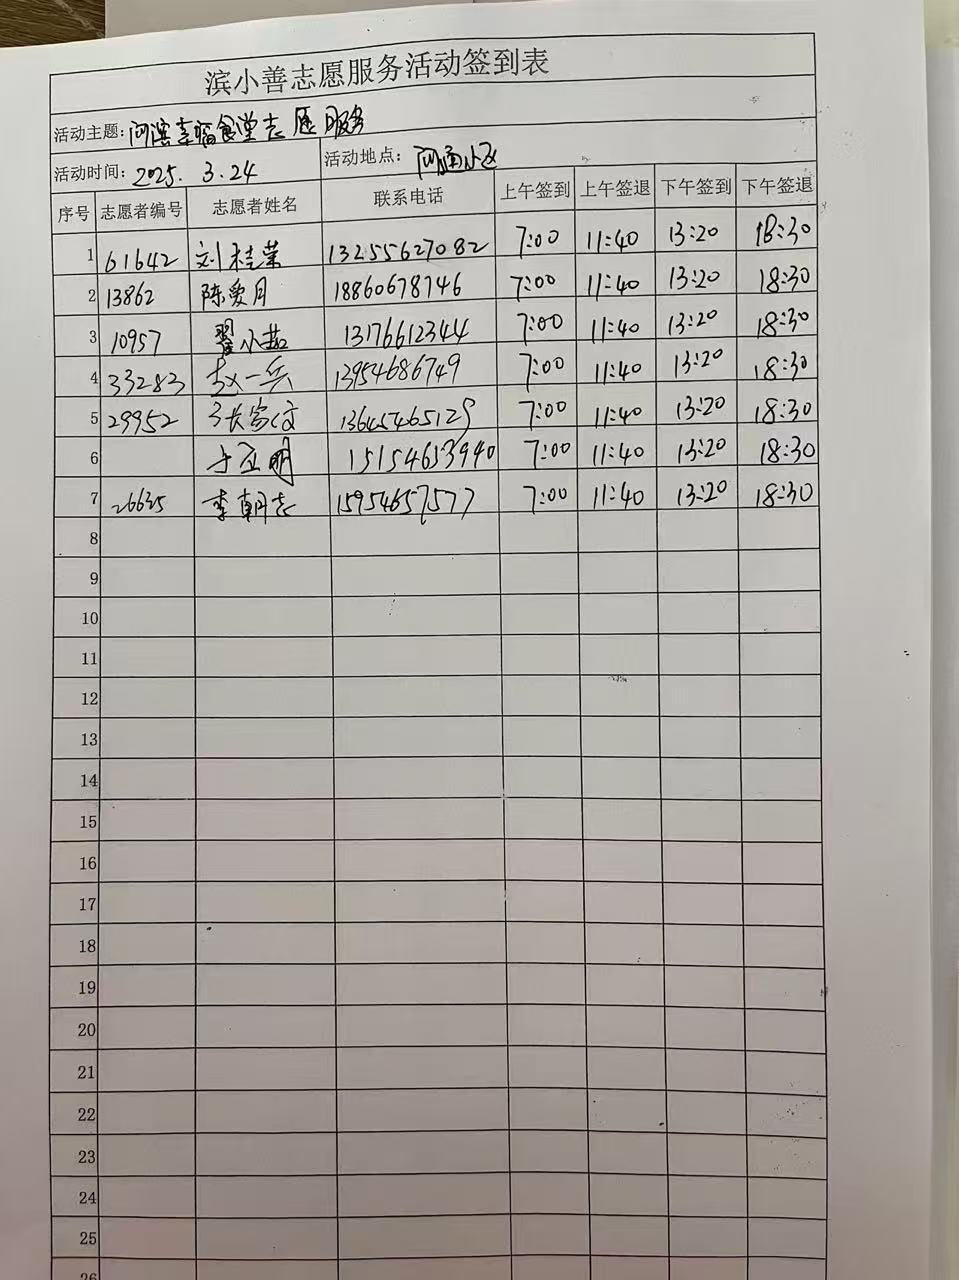 滨小善志愿服务活动签到表
活动主题: 河滨幸福食堂志愿服务
活动时间: 2025. 3.24 活动地点: 河通小区
序号 志愿者编号 志愿者姓名 联系电话 上午签到 上午签退 下午签到 下午签退
1 61642 刘桂荣 13255627082 7:00 11:40 13:20 18:30
2 13862 陈爱月 18860678746 7:00 11:40 13:20 18:30
3 10957 翟小茹 13176612344 7:00 11:40 13:20 18:30
4 33283 赵一兵 13954686749 7:00 11:40 13:20 18:30
5 29952 13645465129 7:00 11:40 13:20 18:30
6 明 15154653940 7:00 11:40 13:20 18:30
7 26635 李朝志 15954657577 7:00 11:40 13:20 18:30
8
9
10
11
12
13
14
15
16
17
18
19
20
21
22
23
24
25
26